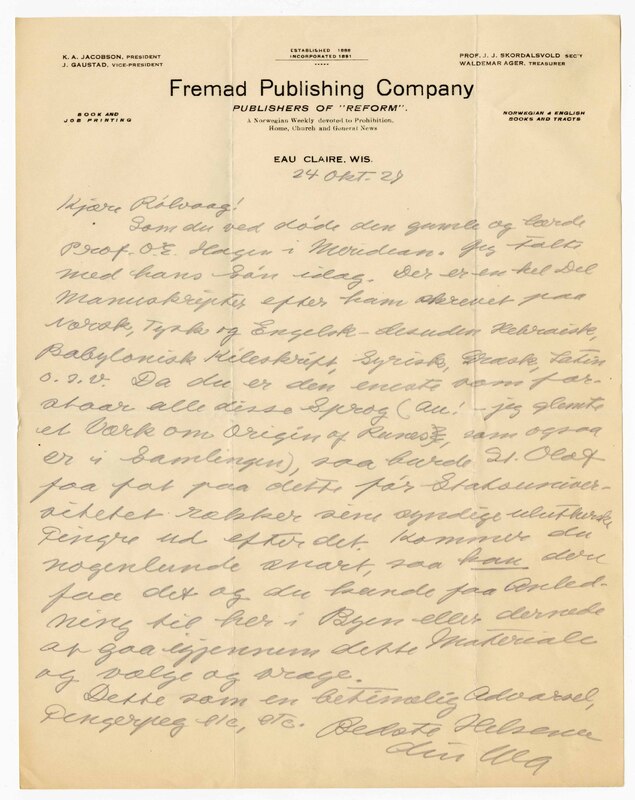 ESTABLISHED 1888
INCORPORATED 1891
K. A. JACOBSON, PRESIDENT
J. GAUSTAD, VICE-PRESIDENT
PROF. J. J. SKORDALSVOLD SEC'Y
WALDEMAR AGER, TREASURER
Fremad Publishing Company
PUBLISHERS OF "REFORM".
BOOK AND
JOB PRINTING
A Norwegian Weekly devoted to Prohibition,
Home, Church and General News
NORWEGIAN & ENGLISH
BOOKS AND TRACTS
EAU CLAIRE, WIS.
24 Okt. 27
Kjære Rölvaag!
Som du ved døde den gamle og lærde
Prof. O. E. Hagen i Meridean. Jeg talte
med hans Søn idag. Der er en hel Del
Manuskripter efter ham skrevet paa
Norsk, Tysk og Engelsk – desuden Hebraisk,
Babylonisk Kileskrift, Syrisk, Græsk, Latin
o. s. v. Da du er den eneste som for-
staar alle disse Sprog (au! – jeg glemte
et Værk om Origin of Runes, som ogsaa
er i Samlingen), saa burde St. Olaf
faa fat paa dette før Statsuniver-
sitetet sine syndige ulutherske
Fingre ud efter det. Kommer du
nogenlunde snart, saa kan du
faa det og du kunde faa Anled-
ning til her i Byen eller dernede
at gaa igjennem dette Materiale
og vælge og vrage.
Dette som en betimelig Advarsel,
Fingerpeg etc, etc. Bedste Hilsener
din